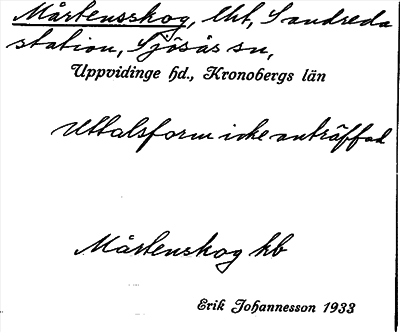 Mårtensskog, lht, Sandreda
station, Sjösås sn,
Uppvidinge hd., Kronobergs län
Uttalsform icke anträffad
Mårtenskog kb
Erik Johannesson 1933